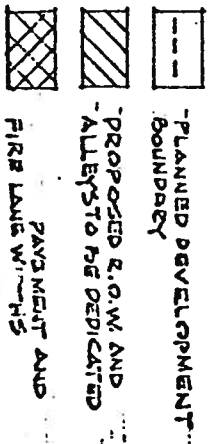 -PLANNED DEVELOPMENT
BOUNDARY
-PROPOSED R.O.W. AND
-ALLEYS TO BE DEDICATED
PAVEMENT AND
FIRE LANE